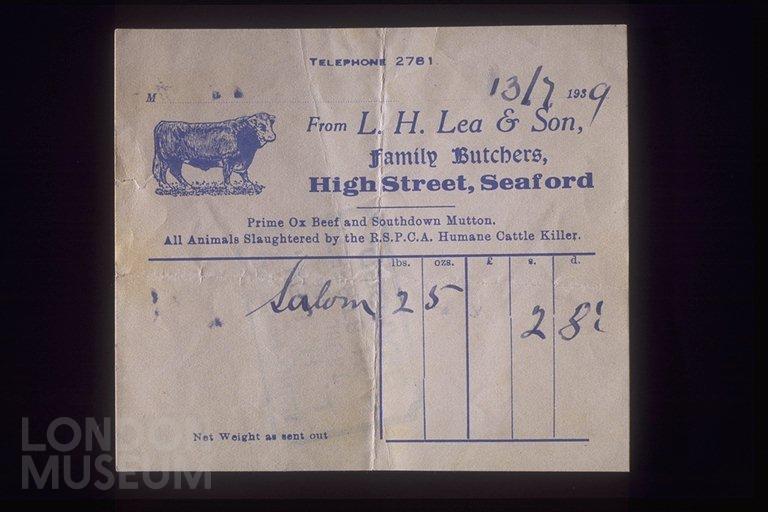 TELEPHONE 2781
M 13/7 1939
From L. H. Lea & Son,
Family Butchers,
High Street, Seaford
Prime Ox Beef and Southdown Mutton.
All Animals Slaughtered by the R.S.P.C.A. Humane Cattle Killer.
lbs. ozs. £ s. d.
2 5 2 8
Net Weight as sent out
LONDON
MUSEUM